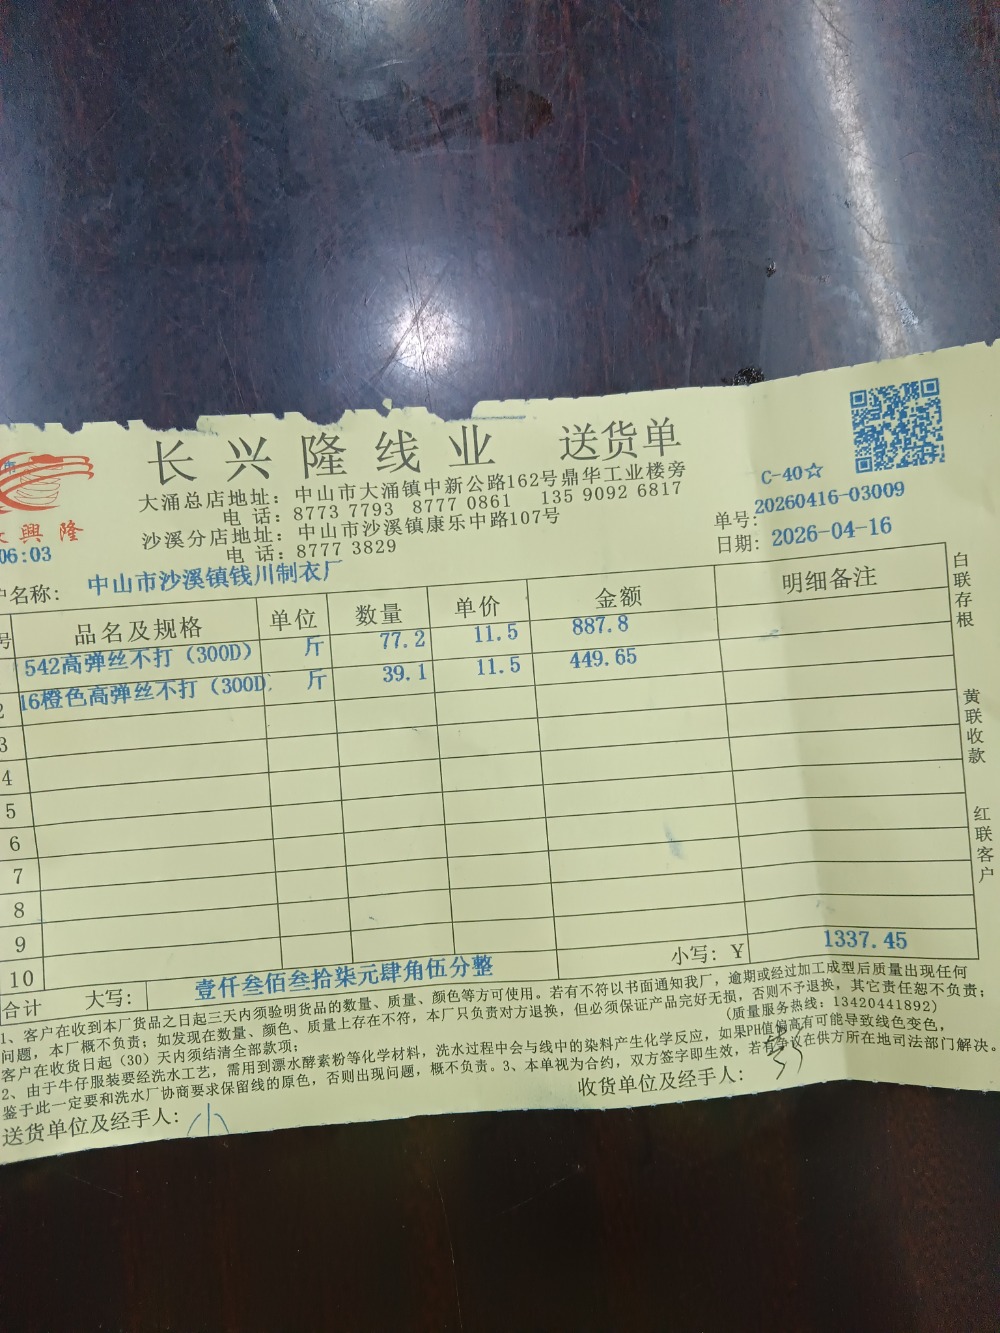 长兴隆线业 送货单
大涌总店地址：中山市大涌镇中新公路162号鼎华工业楼旁
电 话：8773 7793 8777 0861 135 9092 6817
沙溪分店地址：中山市沙溪镇康乐中路107号
电 话：8777 3829
C-40☆
单号：20260416-03009
日期：2026-04-16
興隆
06:03
名称：中山市沙溪镇钱川制衣厂
号 品名及规格 单位 数量 单价 金额 明细备注
542高弹丝不打（300D） 斤 77.2 11.5 887.8
2 16橙色高弹丝不打（300D 斤 39.1 11.5 449.65
3
4
5
6
7
8
9
10
合计 大写：壹仟叁佰叁拾柒元肆角伍分整 小写：¥ 1337.45
白联存根
黄联收款
红联客户
1、客户在收到本厂货品之日起三天内须验明货品的数量、质量、颜色等方可使用。若有不符以书面通知我厂，逾期或经过加工成型后质量出现任何
问题，本厂概不负责；如发现在数量、颜色、质量上存在不符，本厂只负责对方退换，但必须保证产品完好无损，否则不予退换，其它责任恕不负责；
客户在收货日起（30）天内须结清全部款项； (质量服务热线：13420441892)
2、由于牛仔服装要经洗水工艺，需用到漂水酵素粉等化学材料，洗水过程中会与线中的染料产生化学反应，如果PH值偏高有可能导致线色变色，
鉴于此一定要和洗水厂协商要求保留线的原色，否则出现问题，概不负责。3、本单视为合约，双方签字即生效，若有争议在供方所在地司法部门解决。
送货单位及经手人： 收货单位及经手人：